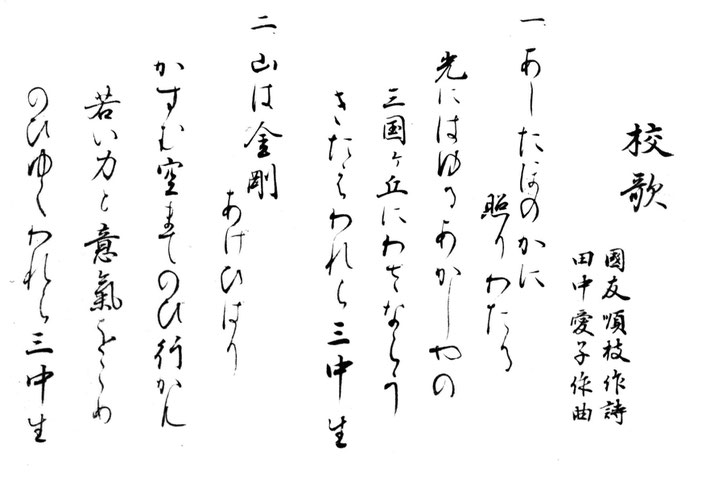 校歌
國友順枝作詩
田中愛子作曲
一 あしたほのかに
照りわたる
光にはゆるあかしやの
三国ヶ丘にわざならう
きたえわれら三中生
二 山は金剛
あげひばり
かすむ空までのび行かん
若い力と意氣をこめ
のびゆくわれら三中生